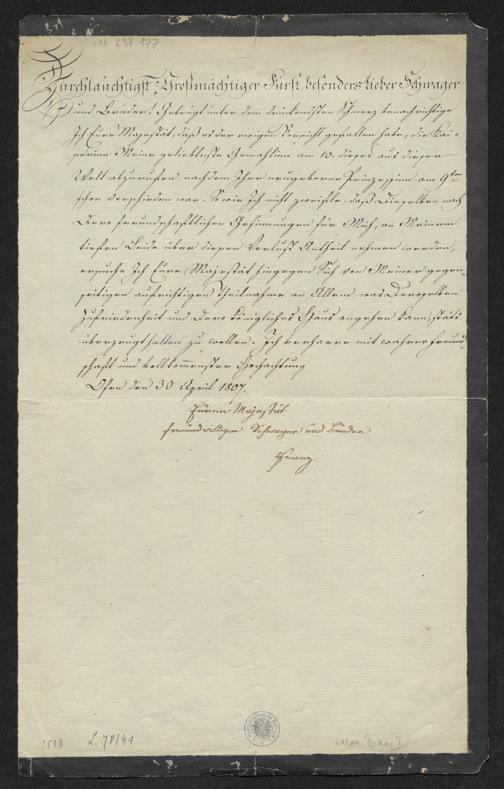 I.N. 237.177
Durchlauchtigst, Großmächtiger Fürst, besonders lieber Schwager
und Bruder! Gebeugt unter dem drückendsten Schmerz benachrichtige
Ich Eure Majestät, daß es der ewigen Vorsicht gefallen habe, die Kai-
serinn Meine geliebteste Gemahlinn am 13. dieses aus dieser
Welt abzurufen, nachdem Ihre neugeborne Prinzessinn am 9ten
schon verschieden war. So wie Ich nicht zweifle, daß Dieselben nach
Dero freundschaftlichen Gesinnungen für Mich, an Meinem
tiefen Leide über diesen Verlust Antheil nehmen werden,
ersuche Ich Eure Majestät hingegen Sich von Meiner gegen-
seitigen aufrichtigen Theilnahme an Allem was Deroselben
Zufriedenheit und Dero königliches Haus angehen kann, stäts
überzeugt halten zu wollen. Ich verharre mit wahrer Freund-
schaft und vollkommenster Hochachtung
Ofen den 30 April 1807.
Euerer Majestät
freundwilliger Schwager und Bruder
Franz
L. 78/41